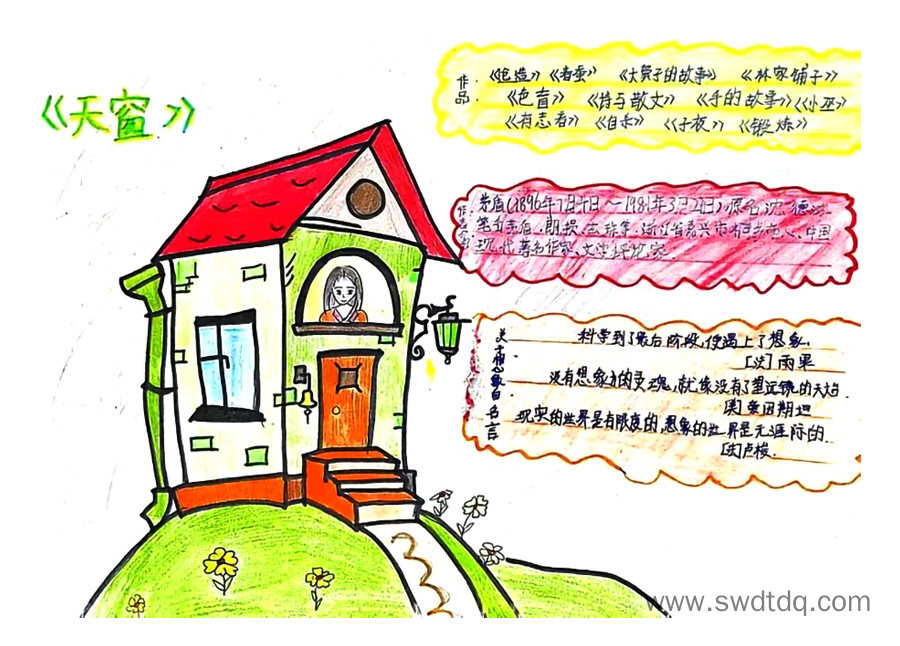 《天窗》
作品:
《创造》《春蚕》《大鼻子的故事》《林家铺子》
《色盲》《诗与散文》《手的故事》《小巫》
《有志者》《自杀》《子夜》《锻炼》
茅盾(1896年7月4日~1981年3月27日)原名沈德鸿
笔名茅盾、郎损、玄珠等,浙江省嘉兴市桐乡市人、中国
现代著名作家、文学评论家.
关于想象的名言
科学到了最后阶段,便遇上了想象.
[法]雨果
没有想象力的灵魂,就像没有了望远镜的天文台.
[美]爱因斯坦
现实的世界是有限度的,想象的世界是无涯际的.
[法]卢梭.
www.swdtdq.com